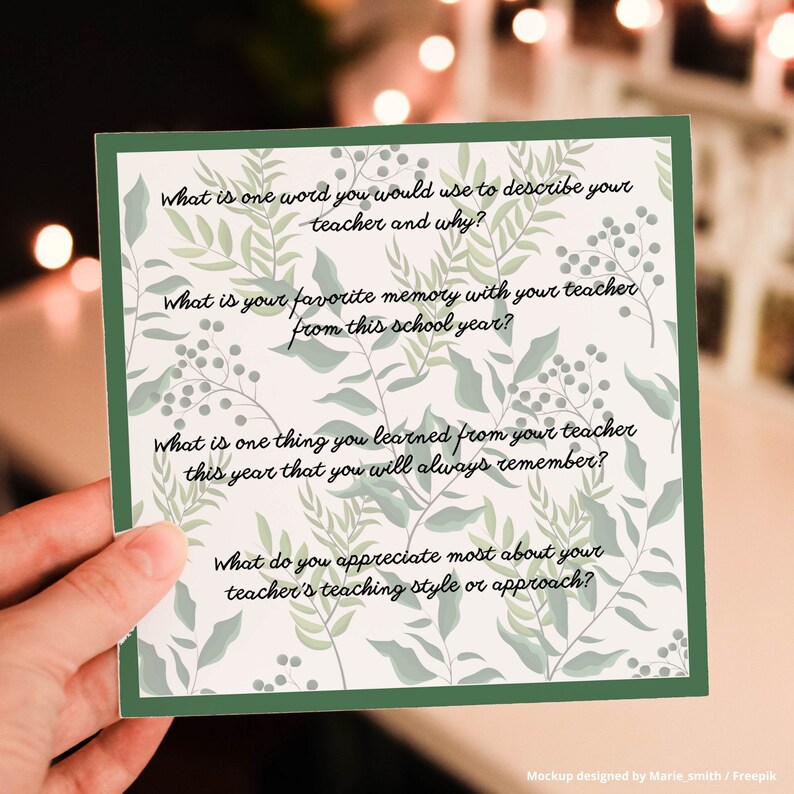 What is one word you would use to describe your
teacher and why?
What is your favorite memory with your teacher
from this school year?
What is one thing you learned from your teacher
this year that you will always remember?
What do you appreciate most about your
teacher's teaching style or approach?
Mockup designed by Marie_smith / Freepik